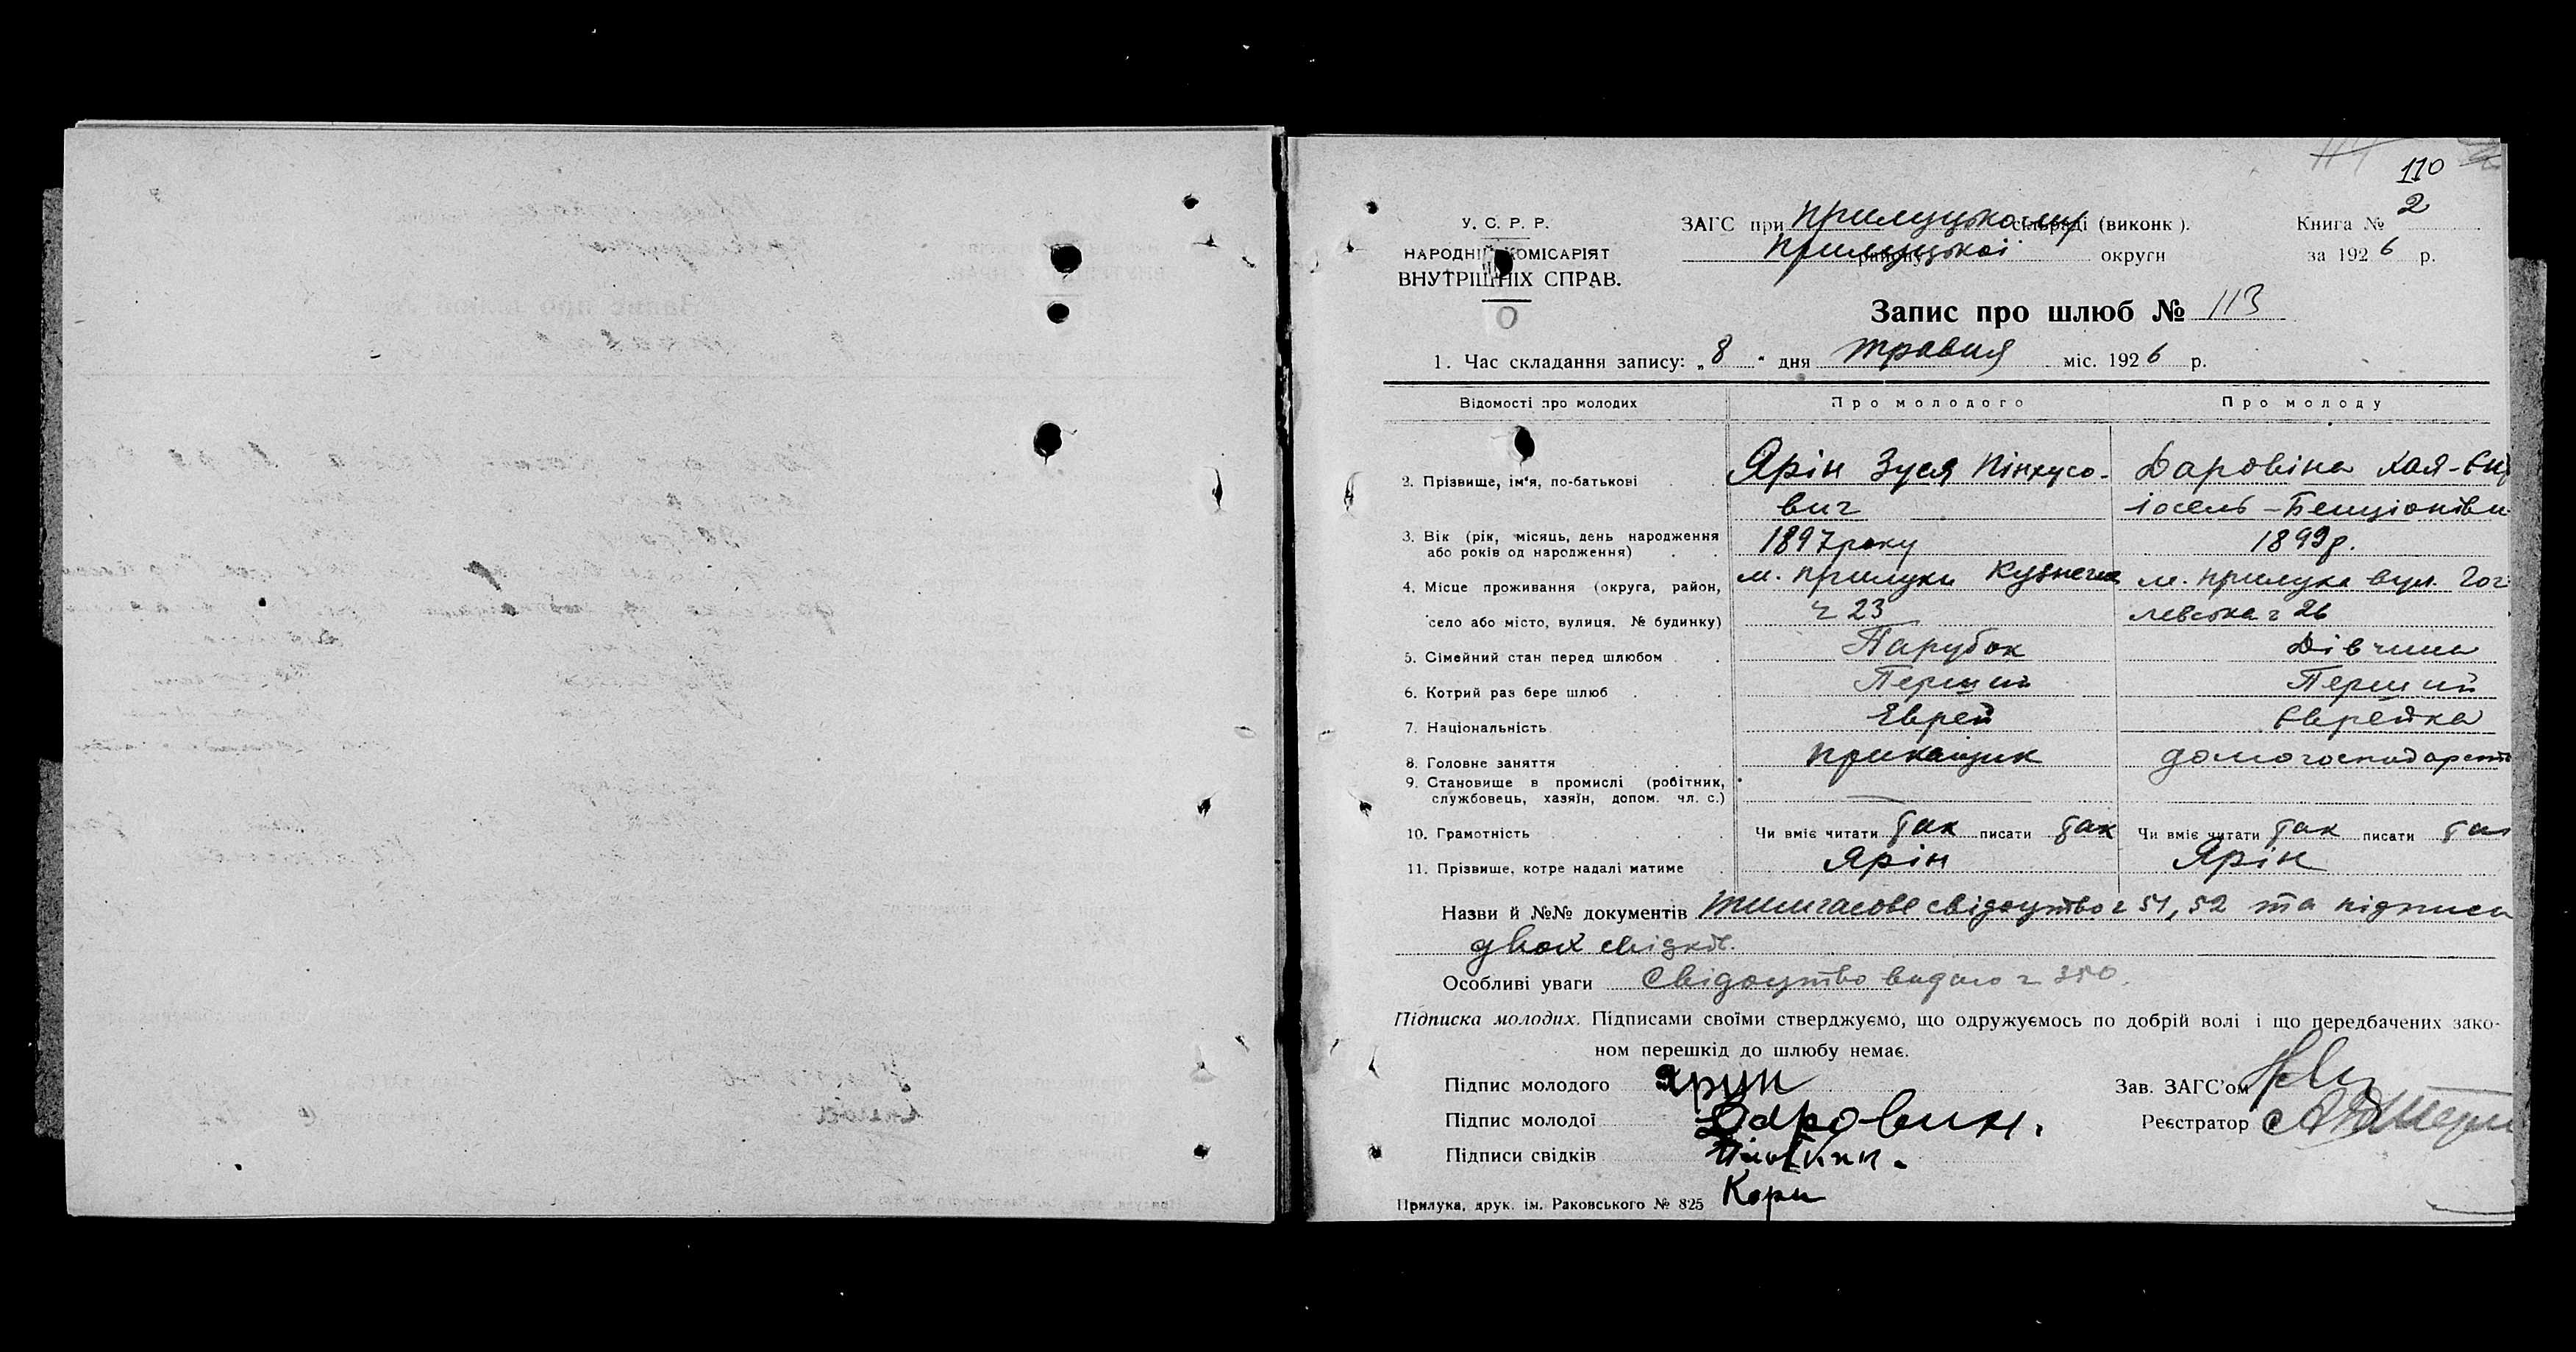 110
У. С. Р. Р.
НАРОДНІЙ КОМІСАРІЯТ
ВНУТРІШНІХ СПРАВ.
ЗАГС при Прилуцькому сільраді (виконк).
Прилуцької району округи
Книга № 2
за 1926 р.
Запис про шлюб № 113
1. Час складання запису: „8" дня травня міс. 1926 р.
Відомості про молодих Про молодого Про молоду
2. Прізвище, ім'я, по-батькові Ярін Зуся Пінхусо- Даровіна Хая-
вич Іосель-Бенціонівн
3. Вік (рік, місяць, день народження
або років од народження) 1897 року 1899 р.
4. Місце проживання (округа, район, м. Прилуки м. Прилука вул. Гог
село або місто, вулиця, № будинку) ч 23 левська ч 26
5. Сімейний стан перед шлюбом Парубок Дівчина
6. Котрий раз бере шлюб Перший Перший
7. Національність Єврей Єврейка
8. Головне заняття прикащик домогосподарств
9. Становище в промислі (робітник,
службовець, хазяїн, допом. чл. с.)
10. Грамотність Чи вміє читати так писати так Чи вміє читати так писати так
11. Прізвище, котре надалі матиме Ярін Ярін
Назви й №№ документів тимчасове свідоцтво ч 51, 52 та підписи
двох свідків.
Особливі уваги Свідоцтво видано ч 350.
Підписка молодих. Підписами своїми стверджуємо, що одружуємось по добрій волі і що передбачених зако-
ном перешкід до шлюбу немає.
Підпис молодого Ярин
Зав. ЗАГС'ом
Підпис молодої Даровин.
Реєстратор
Підписи свідків
Прилука, друк. ім. Раковського № 825